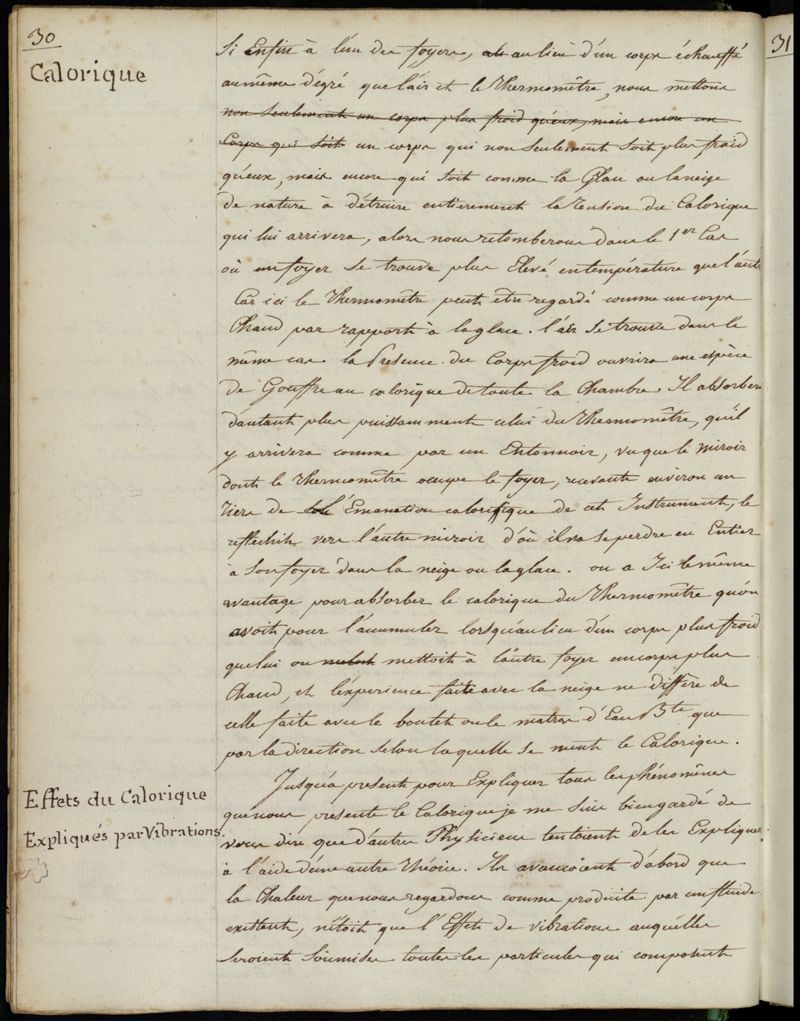 30
31
Calorique
Si Enfin à l'un des foyers, au lieu d'un corps échauffé
au même dégré que l'air et le thermomètre, nous mettons
non seulement un corps plus froid qu'eux, mais encore un
Corps qui soit un corps qui non seulement soit plus froid
qu'eux, mais encore qui soit comme la Glace ou la neige
de nature à détruire entierement la tension du Calorique
qui lui arrivera, alors nous retomberons dans le 1er Cas
où un foyer se trouve plus Elevé en température que l'autre
Car ici le thermomètre peut être regardé comme un corps
Chaud par rapport à la glace. l'air se trouve dans le
même cas. la Présence du Corps froid ouvrira une espèce
de Gouffre au calorique de toute la Chambre. Il absorbera
d'autant plus puissamment celui du thermomètre, qu'il
y arrivera comme par un Entonnoir, vu que le miroir
dont le thermomètre occupe le foyer, recevant environ un
tiers de l'Émanation calorifique de cet Instrument, le
réflechit vers l'autre miroir d'où il va se perdre en Entier
à son foyer dans la neige ou la glace. on a Ici le même
avantage pour absorber le calorique du thermomètre qu'on
avoit pour l'accumuler lorsqu'au lieu d'un corps plus froid
que lui on mettoit à l'autre foyer un corps plus
Chaud, et l'éxpérience faite avec la neige ne diffère de
celle faite avec le boulet ou le matras d'Eau Bte que
par la direction selon laquelle se meut le Calorique.
Effets du Calorique
Expliqués par Vibrations.
Jusqu'a présent pour Expliquer tous les phénomènes
que nous présente le Calorique je me suis bien gardé de
vous dire que d'autres Physiciens tentoient de les Expliquer
à l'aide d'une autre théorie. Ils avancoient d'abord que
la Chaleur que nous regardons comme produite par un fluide
existant, n'étoit que l'Effet de vibrations auquelles
seroient soumises toutes les particules qui composent